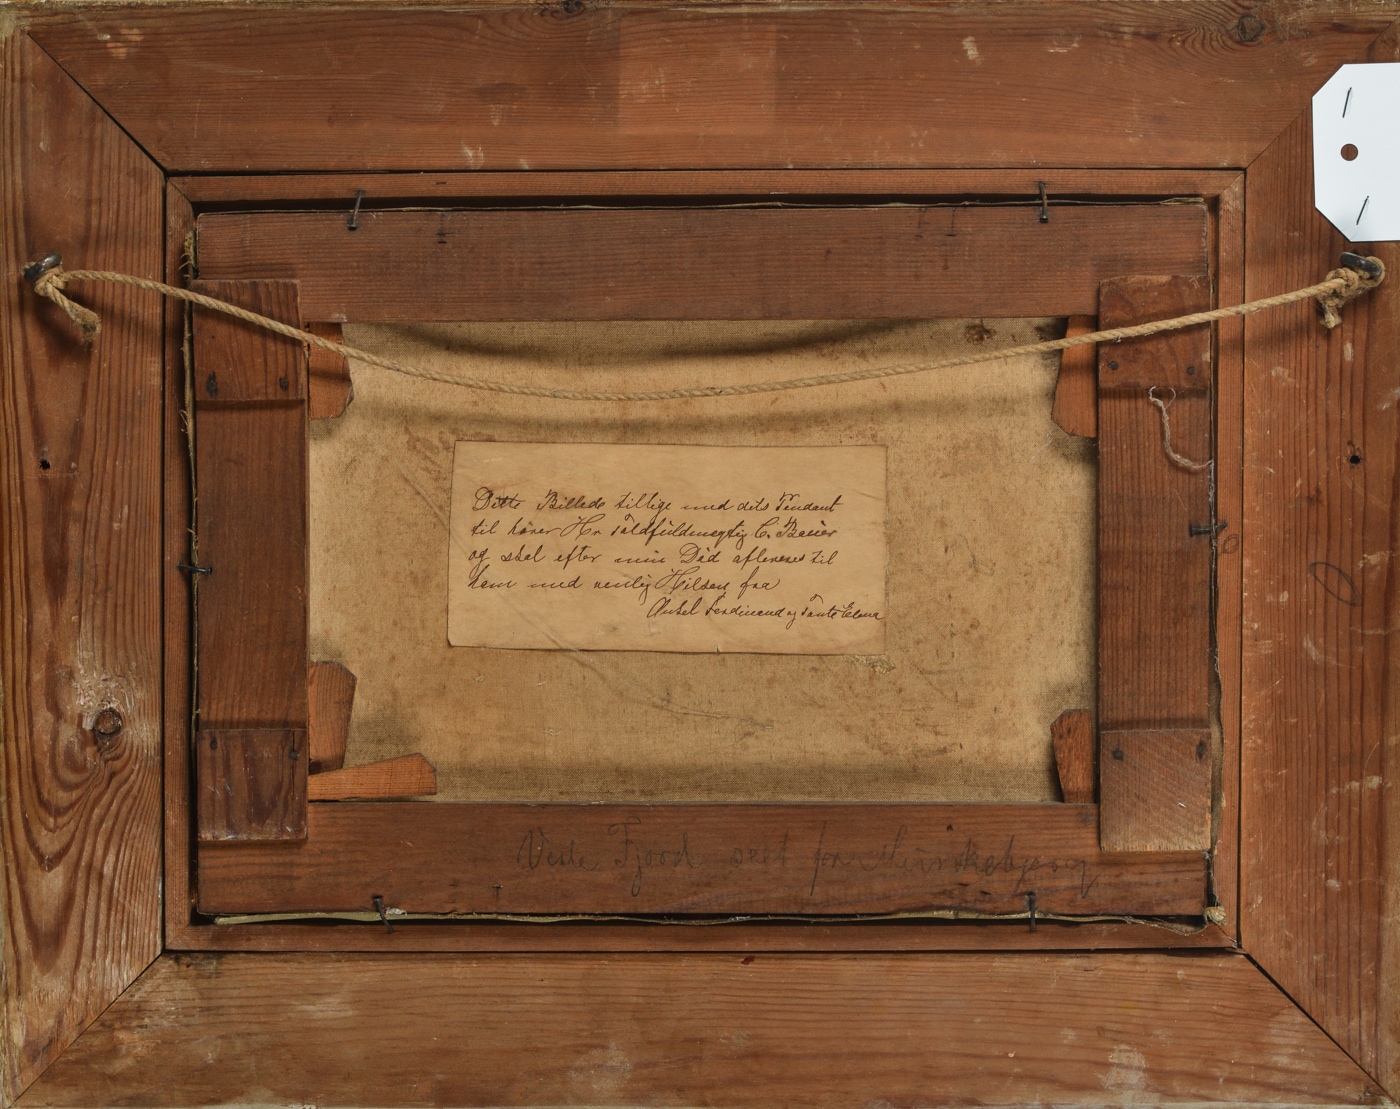 Dette Billede tillige med dets Pendant
til hører Hr. Toldfuldmegtig C. Beuer
og skal efter min Död afleveres til
ham med venlig Hilsen fra
Onkel Ferdinand og Tante Elena
Vejle Fjord seet fra Munkebjerg